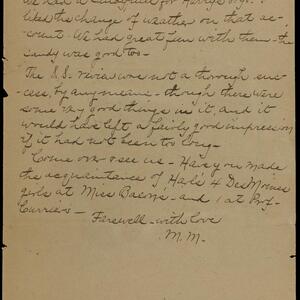 liked the change of weather on that ac-
count. We had great fun with them - the
candy was good too -
The S.S. review was not a thorough suc-
cess, by any means - though there were
some very good things in it, and it
would have left a fairly good impression
if it had not been too long -
Come on & see us - Have you made
the acquaintance of Hale's 4 Des Moines
girls at Miss Bacon's - and 1 at Prof.
Currier's -
Farewell - with love
M. M. -